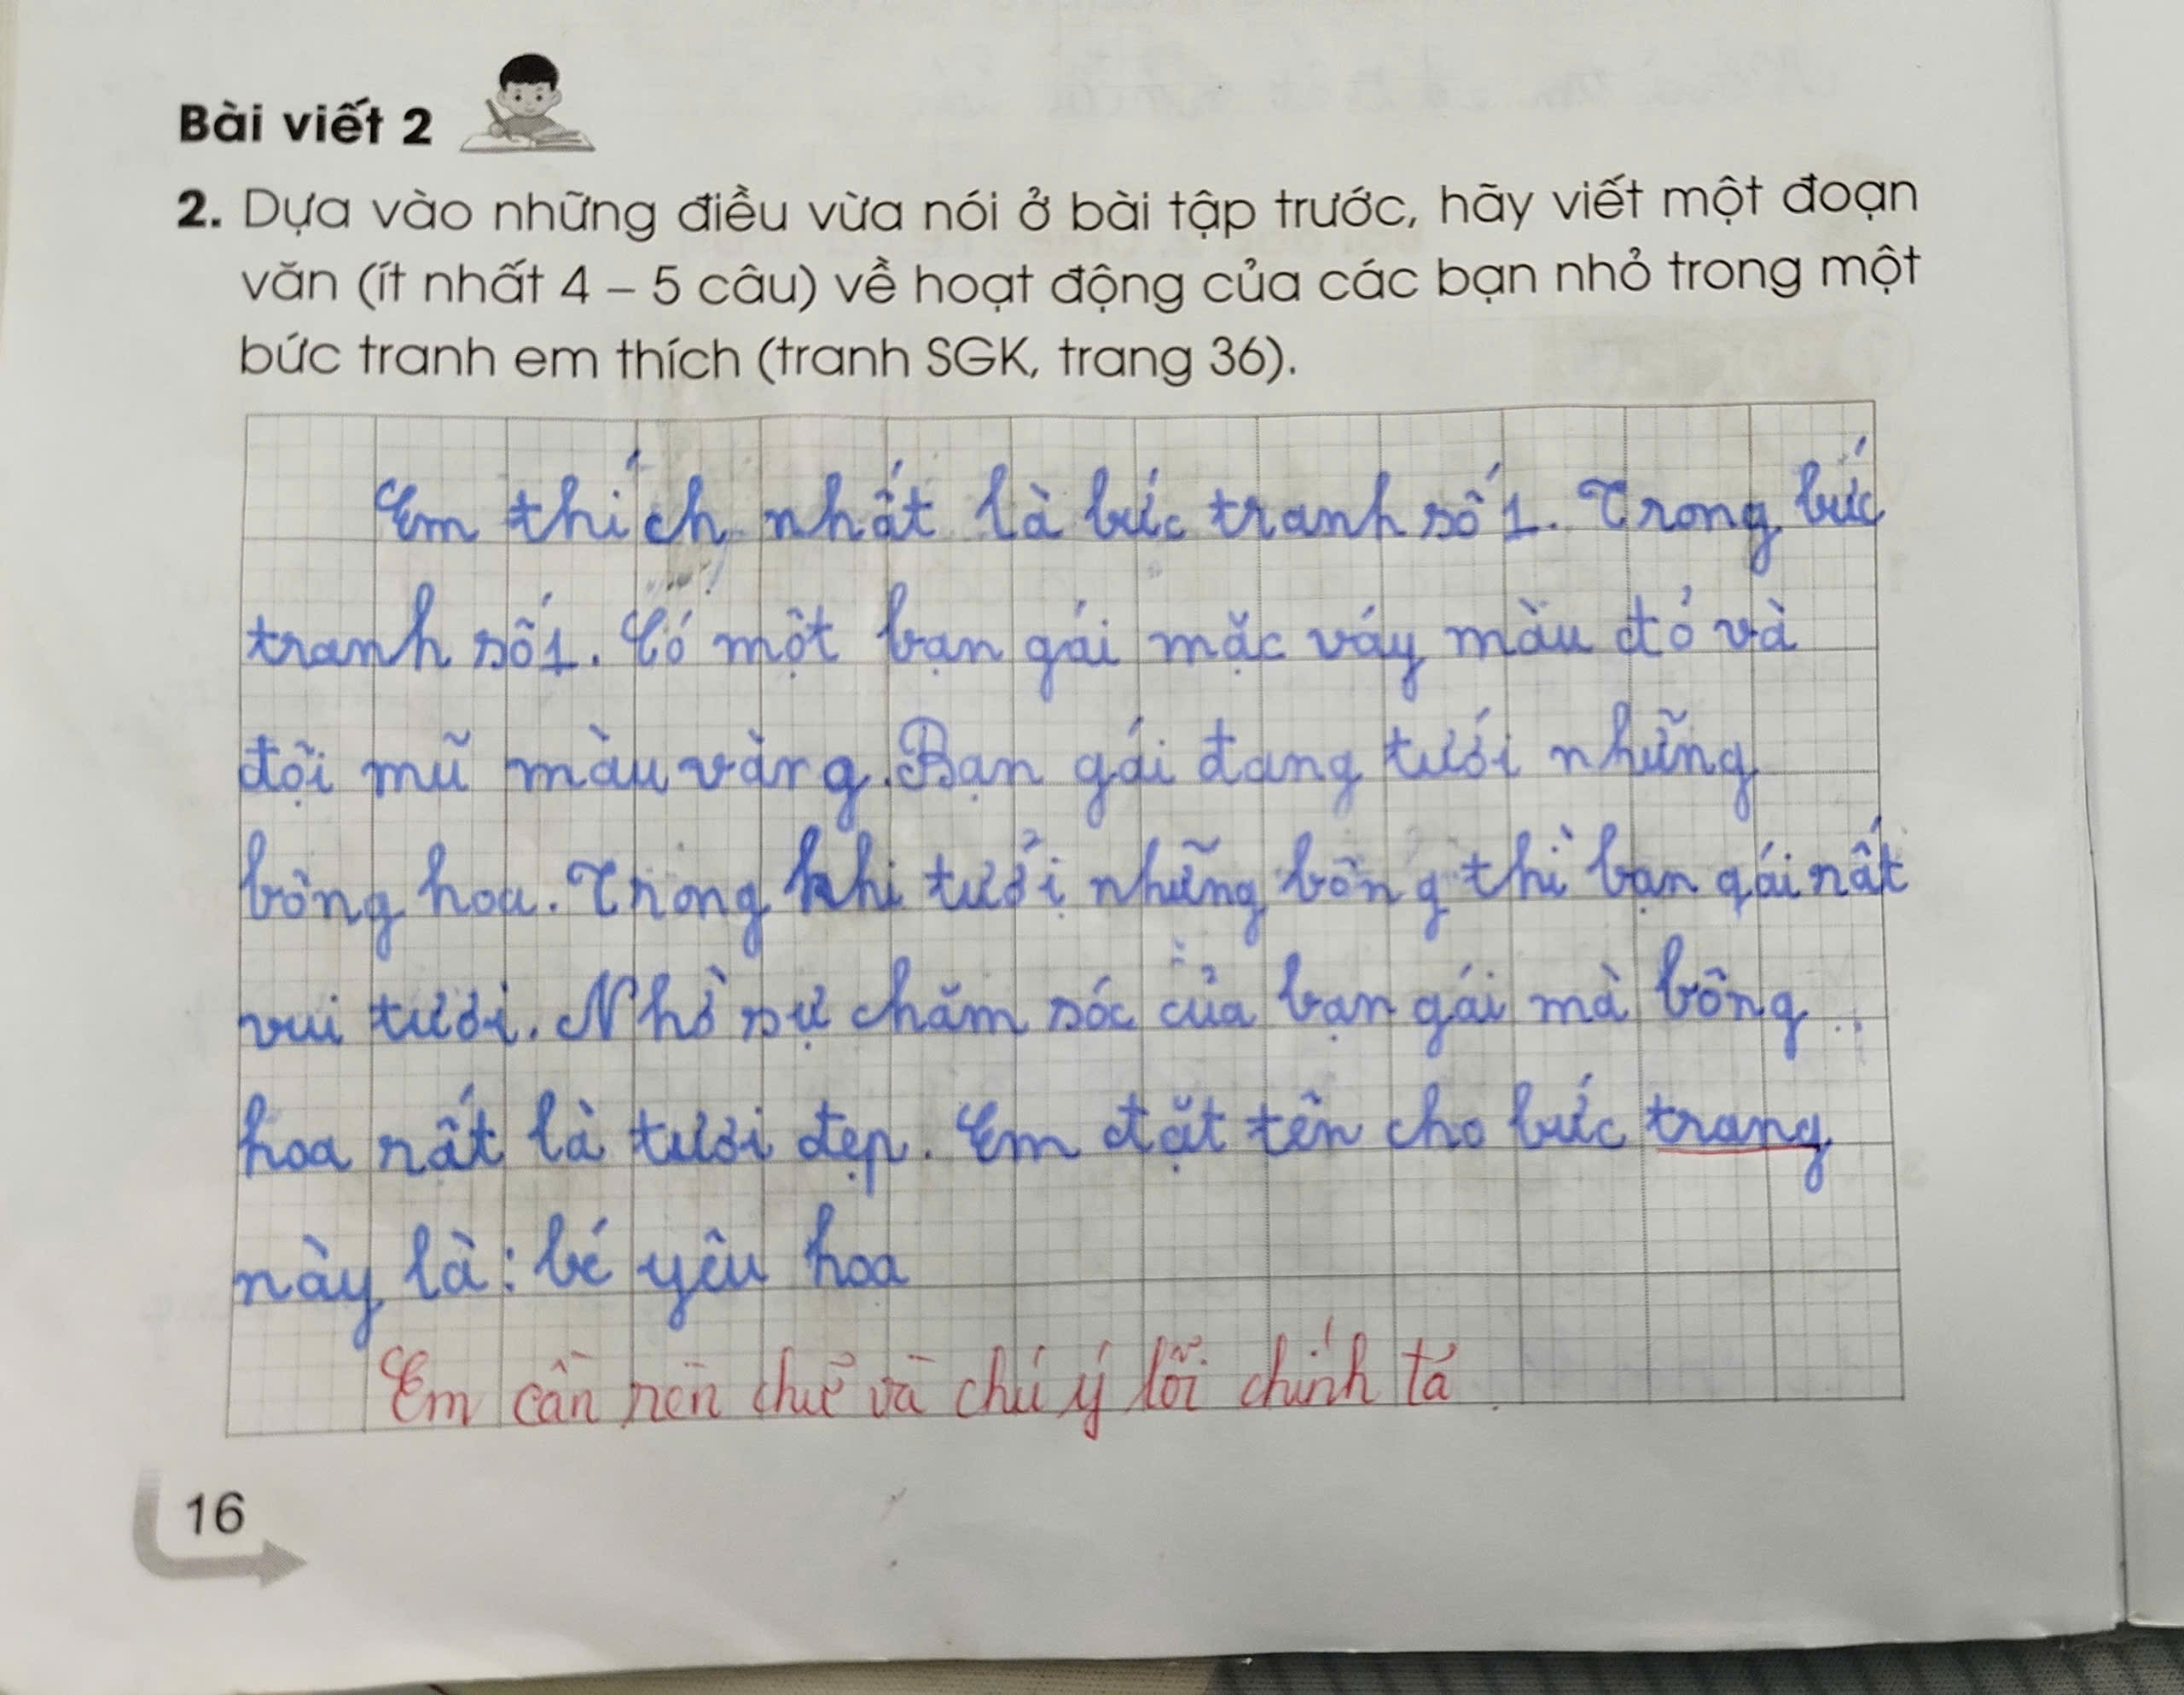 Bài viết 2
2. Dựa vào những điều vừa nói ở bài tập trước, hãy viết một đoạn
văn (ít nhất 4 – 5 câu) về hoạt động của các bạn nhỏ trong một
bức tranh em thích (tranh SGK, trang 36).
Em thích nhất là bức tranh số 1. Trong bức
tranh số 1. Có một bạn gái mặc váy màu đỏ và
đội mũ màu vàng. Bạn gái đang tưới những
bông hoa. Trong khi tưới những bông thì bạn gái rất
vui tươi. Nhờ sự chăm sóc của bạn gái mà bông
hoa rất là tươi đẹp. Em đặt tên cho bức trang
này là: bé yêu hoa
Em cần rèn chữ và chú ý lỗi chính tả
16